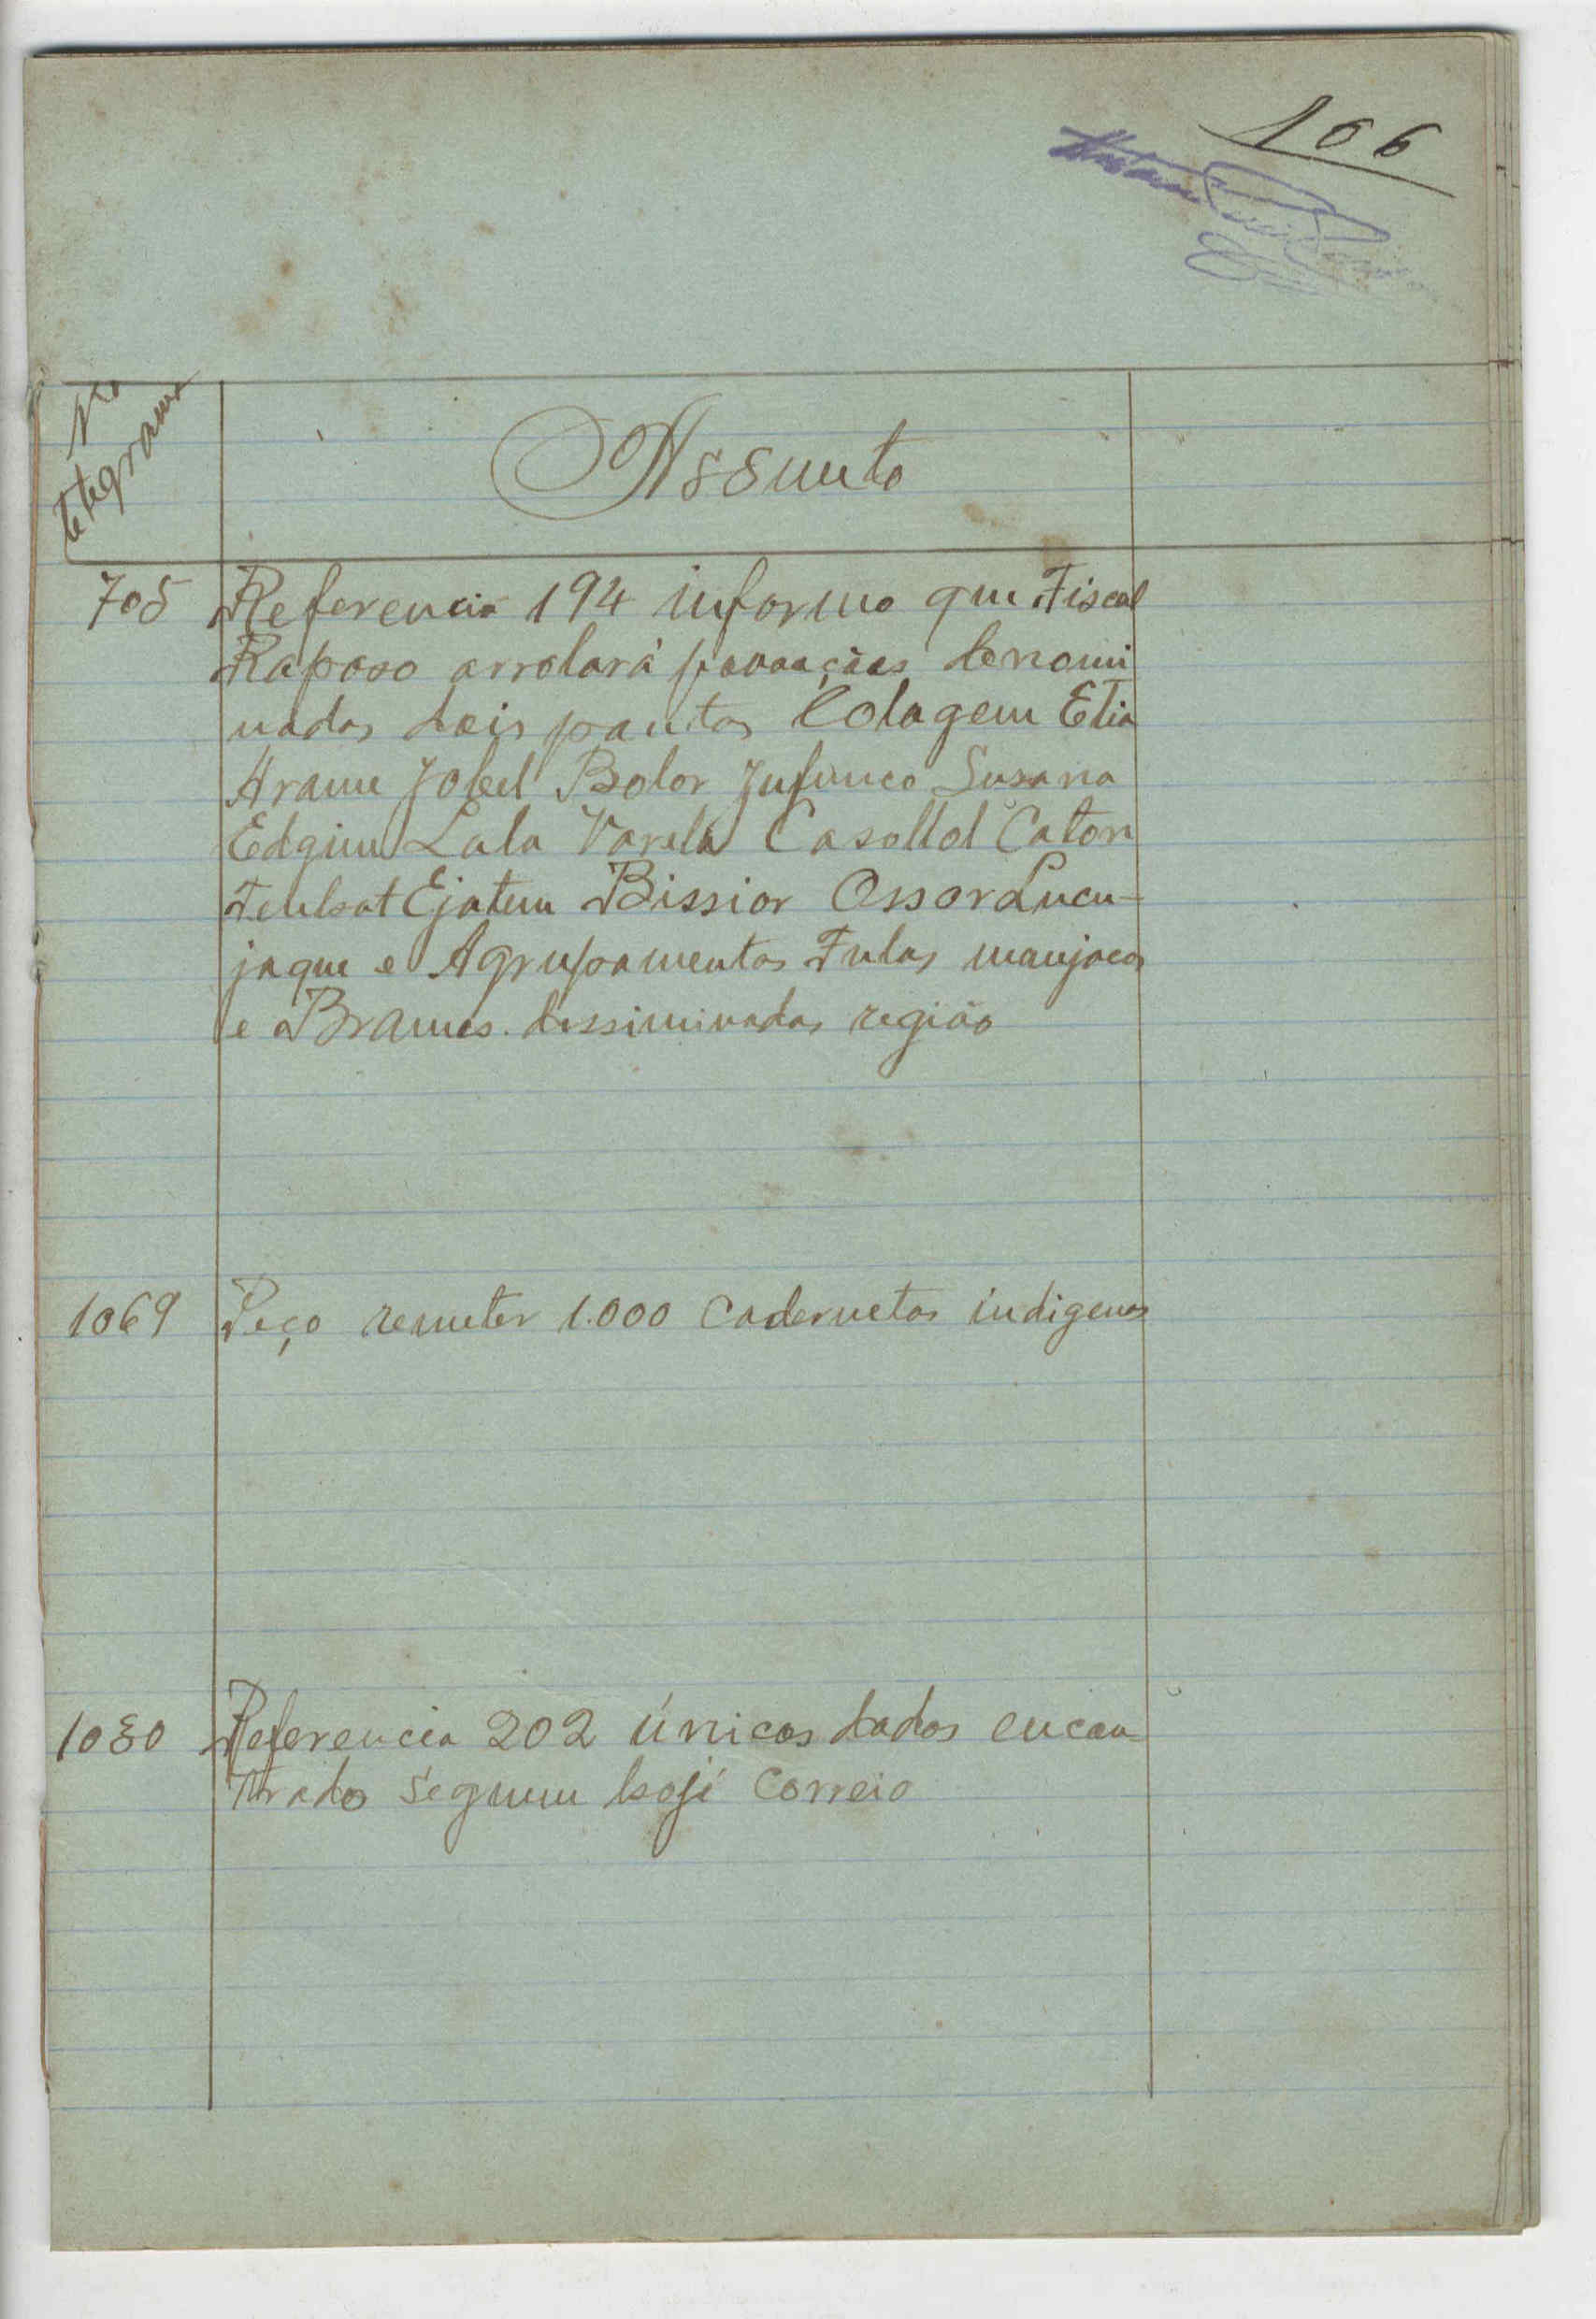 106
No
telegrama
Assunto
705 Referencia 194 informo que Fiscal
Raposo arrolará povoações denomi
nadas dois pontos Colagem Elia
Arame Jobel Bolor Jufunco Susana
Edgim Lala Varela Casollol Caton
Tenhat Ejatem Bissior Ossor Lucu-
jaque e Agrupamentos Fulas manjacos
e Brames dissiminadas região
1069 Peço remeter 1.000 Cadernetas indigenas
1080 Referencia 202 únicos dados encon
trado seguem hoji Correio